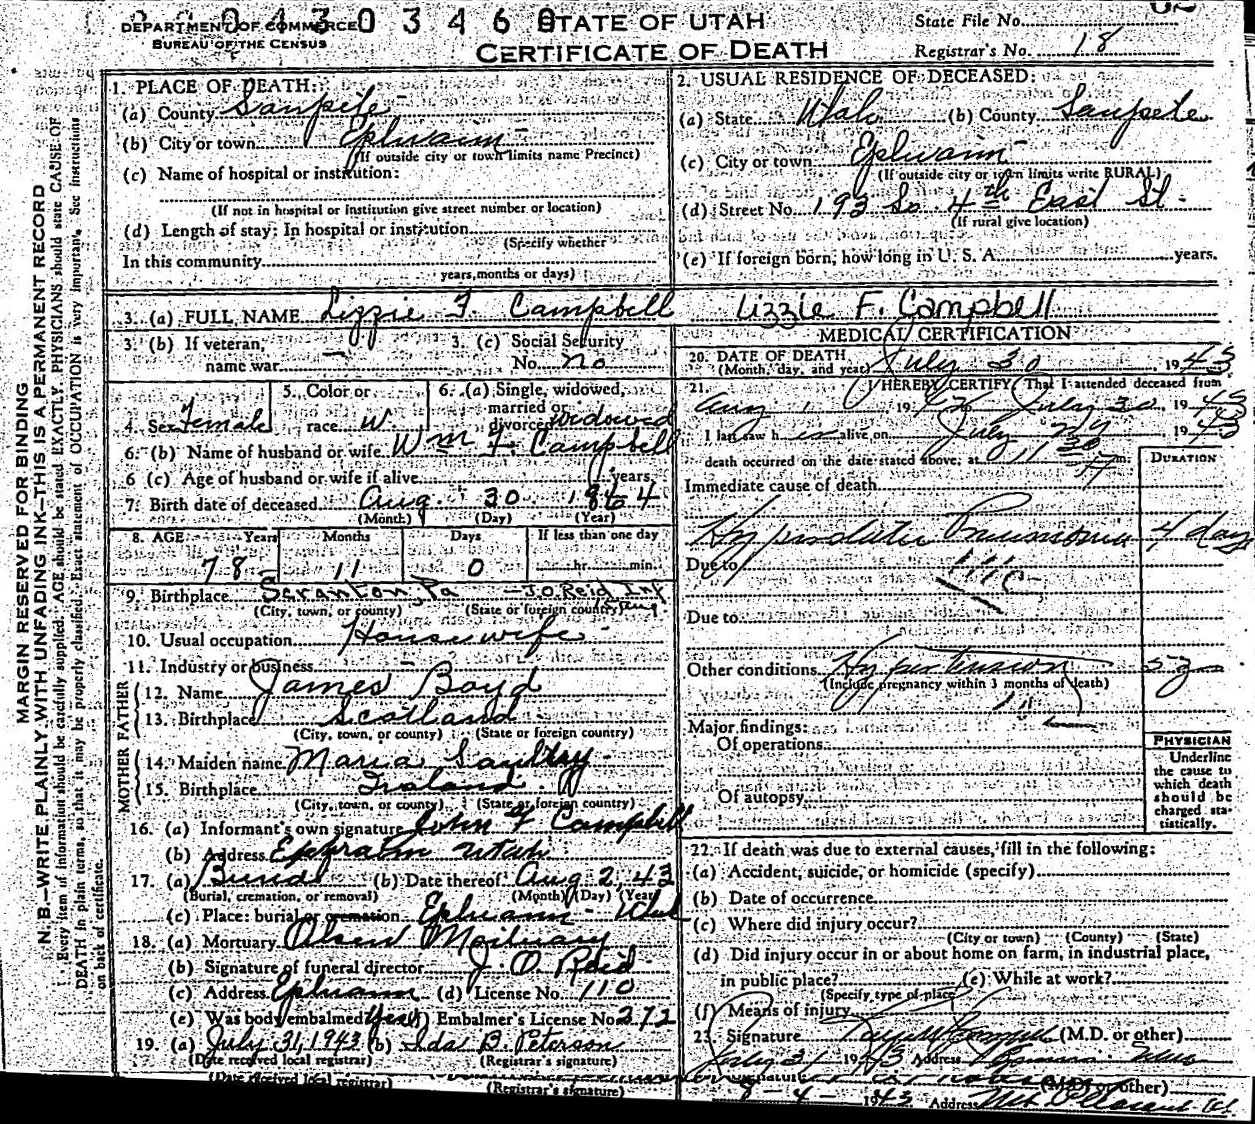 2 0 4 3 0 3 4 6 0
DEPARTMENT OF COMMERCE
BUREAU OF THE CENSUS
STATE OF UTAH
CERTIFICATE OF DEATH
State File No.
Registrar's No. 18
MARGIN RESERVED FOR BINDING
N. B.—WRITE PLAINLY, WITH UNFADING INK—THIS IS A PERMANENT RECORD
Every item of information should be carefully supplied. AGE should be stated EXACTLY. PHYSICIANS should state CAUSE OF
DEATH in plain terms, so that it may be properly classified. Exact statement of OCCUPATION is very important. See instructions
on back of certificate.
1. PLACE OF DEATH:
(a) County Sanpete
(b) City or town Ephraim
(If outside city or town limits name Precinct)
(c) Name of hospital or institution:
(If not in hospital or institution give street number or location)
(d) Length of stay: In hospital or institution
(Specify whether
In this community
years, months or days)
2. USUAL RESIDENCE OF DECEASED:
(a) State Utah (b) County Sanpete
(c) City or town Ephraim
(If outside city or town limits write RURAL)
(d) Street No. 193 So. 4th East St.
(If rural give location)
(e) If foreign born, how long in U. S. A. years.
3. (a) FULL NAME Lizzie F. Campbell Lizzie F. Campbell
3. (b) If veteran, name war —
3. (c) Social Security No. no
4. Sex Female
5. Color or race W.
6. (a) Single, widowed, married or divorced widowed
6. (b) Name of husband or wife Wm F. Campbell
6 (c) Age of husband or wife if alive years
7. Birth date of deceased Aug. 30 1864
(Month) (Day) (Year)
8. AGE Years Months Days If less than one day
78 11 0 hr. min.
9. Birthplace Scranton, Pa — J.O. Reid Inf
(City, town, or county) (State or foreign country)
10. Usual occupation Housewife
11. Industry or business —
FATHER
12. Name James Boyd
13. Birthplace Scotland
(City, town, or county) (State or foreign country)
MOTHER
14. Maiden name Maria
15. Birthplace Ireland
(City, town, or county) (State or foreign country)
16. (a) Informant's own signature John F Campbell
(b) Address Ephraim Utah
17. (a) Burial (b) Date thereof Aug 2, 43
(Burial, cremation, or removal) (Month) (Day) (Year)
(c) Place: burial or cremation Ephraim - Utah
18. (a) Mortuary Olsen Mortuary
(b) Signature of funeral director J. O. Reid
(c) Address Ephraim (d) License No. 110
(e) Was body embalmed Yes (f) Embalmer's License No 272
19. (a) July 31, 1943 (b) Ida B. Peterson
(Date received local registrar) (Registrar's signature)
(Date received local registrar) (Registrar's signature)
MEDICAL CERTIFICATION
20. DATE OF DEATH July 30 1943
(Month, day, and year)
21. I HEREBY CERTIFY That I attended deceased from
Aug 1 19 July 30, 1943
I last saw h er alive on July 1943
death occurred on the date stated above, at 11 30 m.
DURATION
Immediate cause of death
Hypostatic Pneumonia 4 days
Due to
Due to
Other conditions Hypertension
(Include pregnancy within 3 months of death)
Major findings:
Of operations
Of autopsy
PHYSICIAN
Underline
the cause to
which death
should be
charged sta-
tistically.
22. If death was due to external causes, fill in the following:
(a) Accident, suicide, or homicide (specify)
(b) Date of occurrence
(c) Where did injury occur?
(City or town) (County) (State)
(d) Did injury occur in or about home on farm, in industrial place,
in public place? (e) While at work?
(Specify type of place)
(f) Means of injury
23. Signature (M.D. or other)
July 31 1943 Address
(M.D. or other)
8 - 4 - 1943 Address Mt. Pleasant Ut.